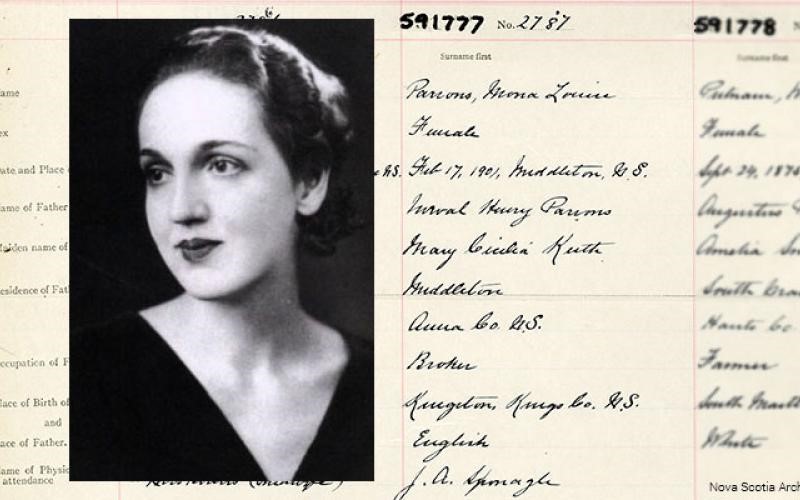 591777 No. 2787
591778
Surname first
Surname first
ame
Parsons, Mona Louise
Putnam,
ex
Female
Female
ate and Place
N.S.
Feb 17, 1901, Middleton, N.S.
Sept 29, 187
ame of Father
Norval Henry Parsons
Augustus
aiden name of
Mary Cicilia Keith
Amelia
esidence of Fat
Middleton
South
Anna Co. N.S.
Hants Co
ccupation of F
Broker
Farmer
lace of Birth of
Kingston, Kings Co. N.S.
South
and
ace of Father.
English
White
ame of Physic
attendance
J. A. Sponagle
Nova Scotia Arch